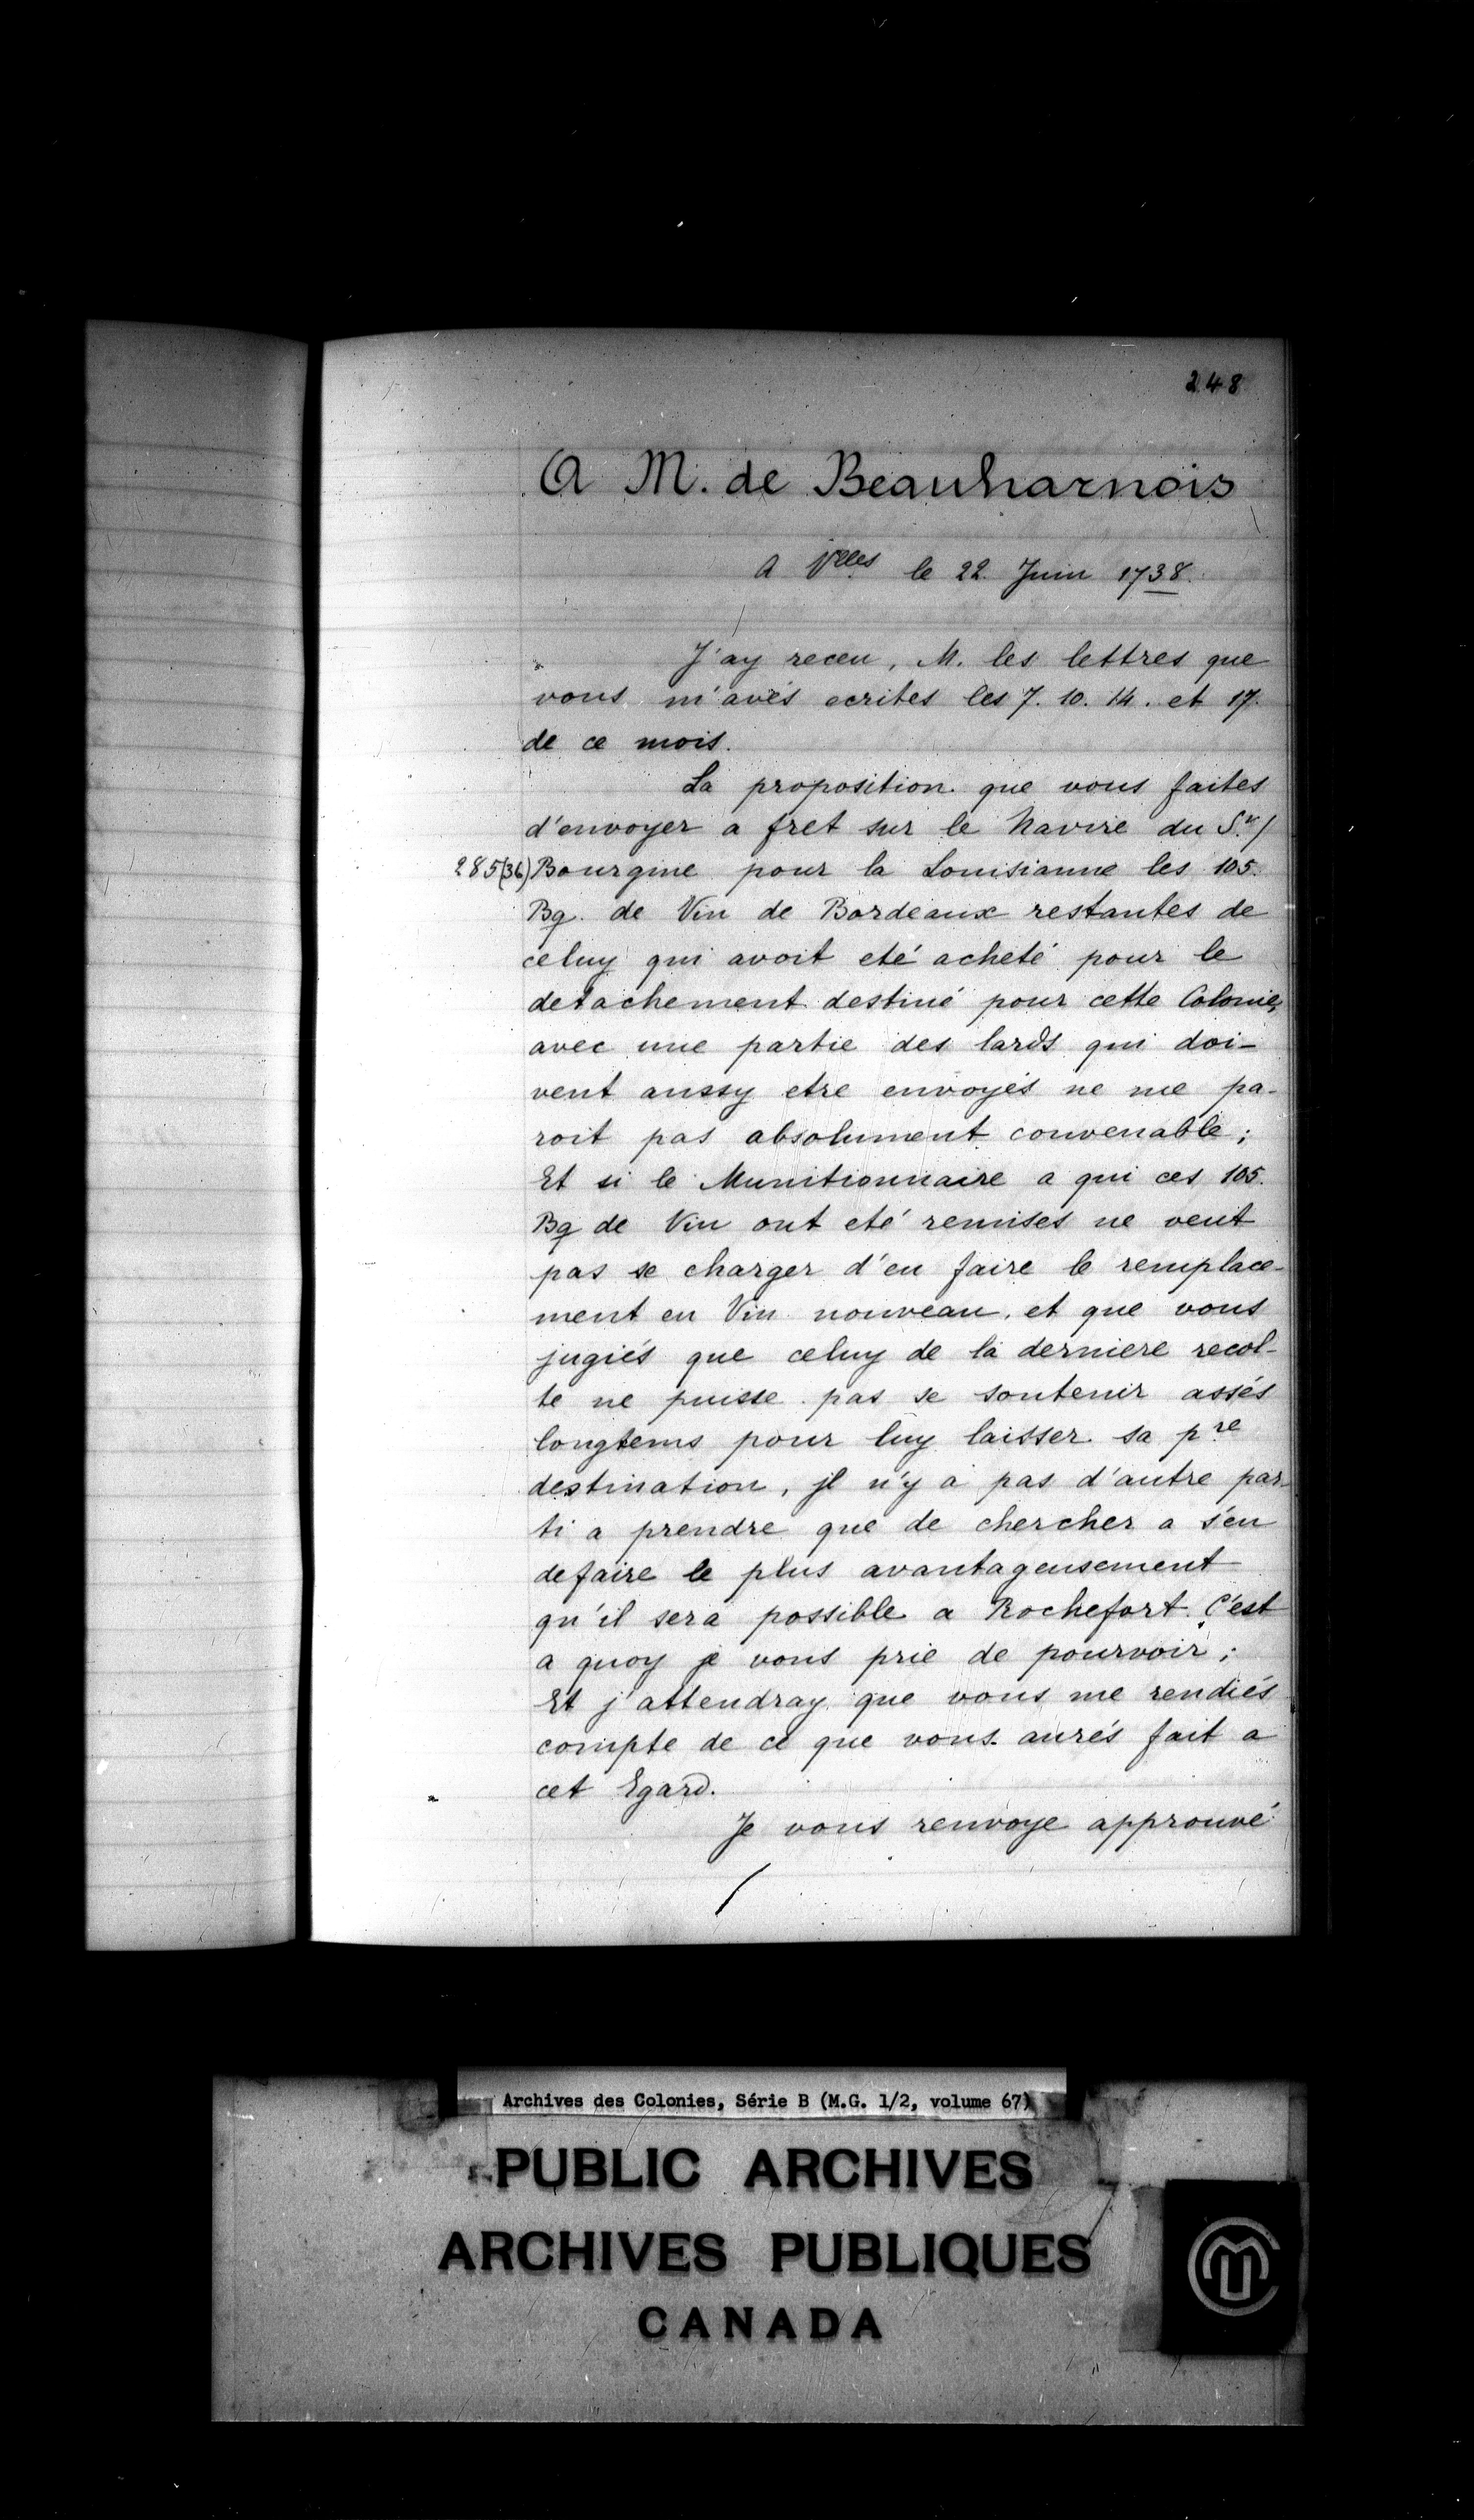 248
A M. de Beauharnois
A Vlles le 22 Juin 1738.
J'ay receu, M. les lettres que
vous m'avés ecrites les 7. 10. 14. et 17.
de ce mois.
La proposition que vous faites
d'envoyer a fret sur le Navire du Sr/
285(36) Bourgine pour la Louisianne les 105.
Bq. de Vin de Bordeaux restantes de
celuy qui avoit eté acheté pour le
detachement destiné pour cette Colonie,
avec une partie des lards qui doi-
vent aussy etre envoyés ne me pa-
roit pas absolument convenable;
Et si le Munitionnaire a qui ces 105.
Bq de Vin ont eté remises ne veut
pas se charger d'en faire le remplace-
ment en Vin nouveau, et que vous
jugiés que celuy de la derniere recol-
te ne puisse pas se soutenir assés
longtems pour luy laisser sa pre
destination, jl n'y a pas d'autre par-
ti a prendre que de chercher a s'en
defaire le plus avantageusement
qu'il sera possible a Rochefort. C'est
a quoy je vous prie de pourvoir;
Et j'attendray que vous me rendiés
compte de ce que vous aurés fait a
cet Egard.
Je vous renvoye approuvé
Archives des Colonies, Série B (M.G. 1/2, volume 67)
PUBLIC ARCHIVES
ARCHIVES PUBLIQUES
CANADA